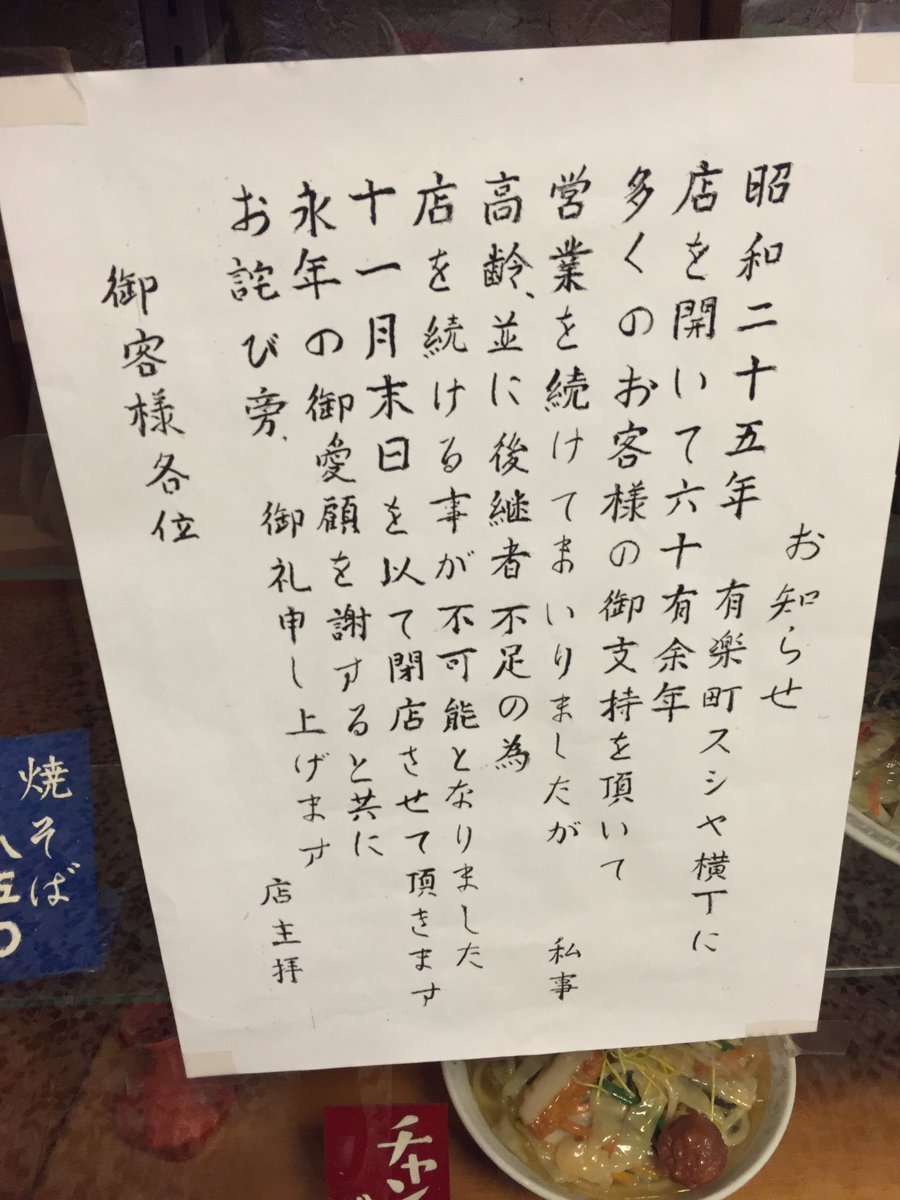 お知らせ
昭和二十五年 有楽町スシヤ横丁に
店を開いて六十有余年
多くのお客様の御支持を頂いて
営業を続けてまいりましたが 私事
高齢、並に後継者不足の為
店を続ける事が不可能となりました
十一月末日を以て閉店させて頂きます
永年の御愛顧を謝すると共に
お詫び旁、御礼申し上げます
店主拝
御客様各位
焼そば
チャン